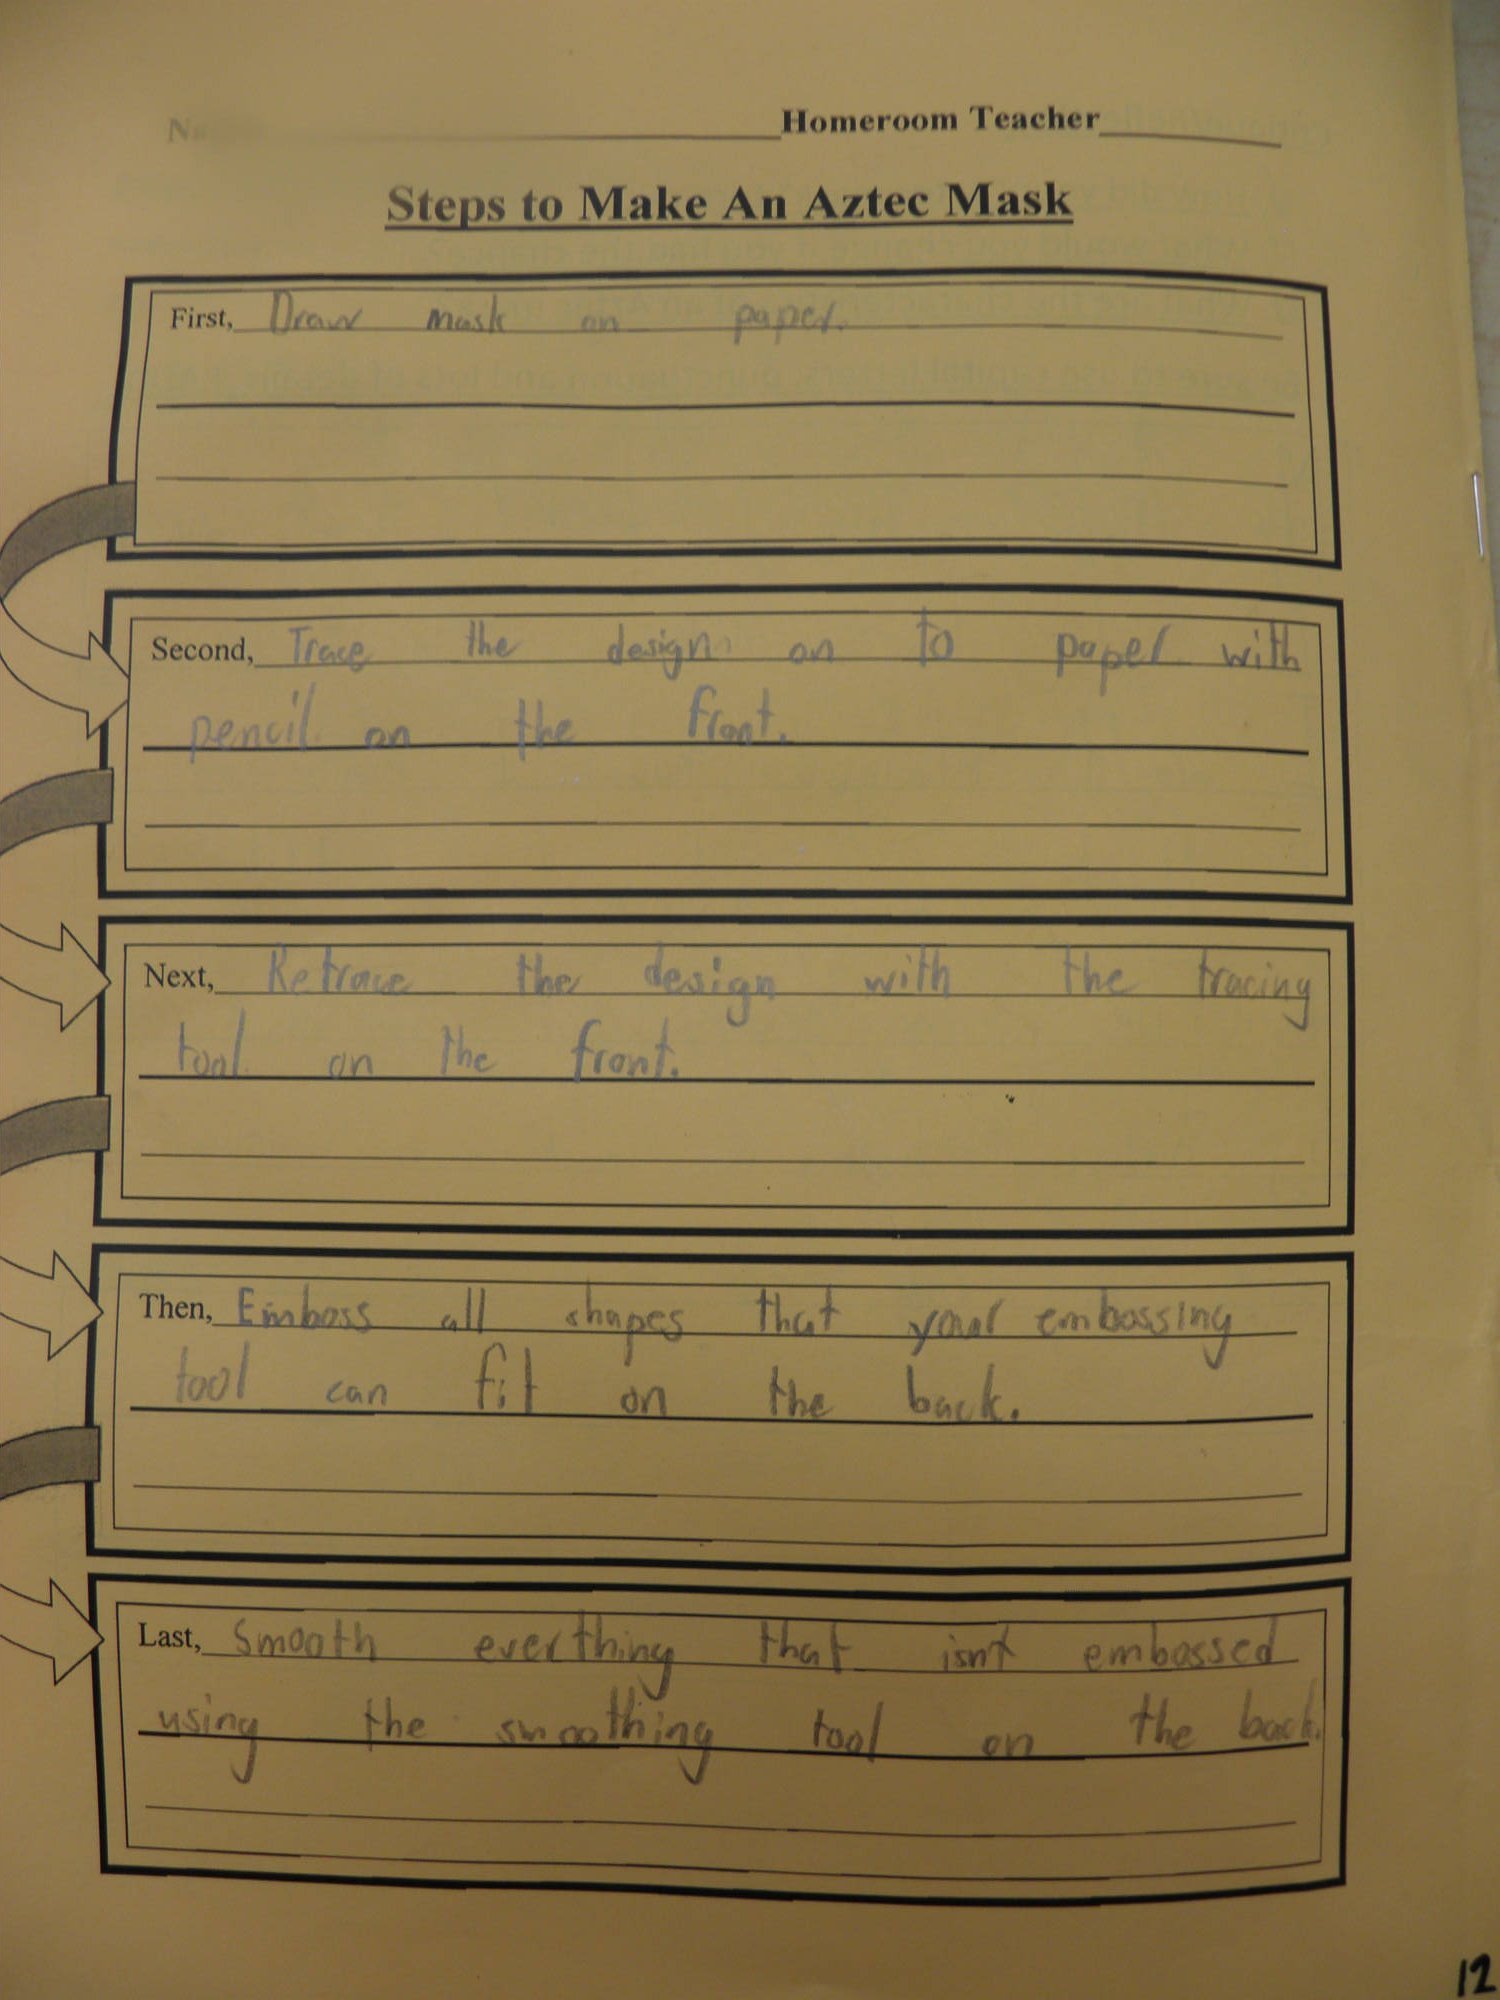 Homeroom Teacher
Steps to Make An Aztec Mask
First, Draw mask on paper.
Second, Trace the design on to paper with
pencil on the front.
Next, Retrace the design with the tracing
tool on the front.
Then, Emboss all shapes that your embossing
tool can fit on the back.
Last, Smooth everthing that isn't embossed
using the smoothing tool on the back.
12